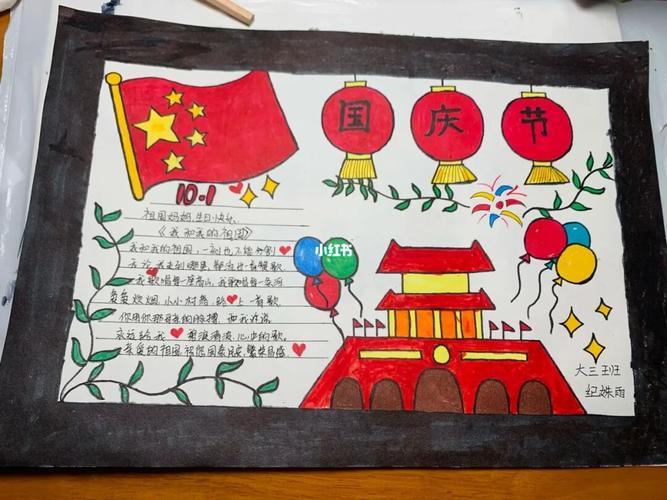 国庆节
10.1
祖国妈妈,生日快乐
《我和我的祖国》
我和我的祖国,一刻也不能分割
无论我走到哪里,都流出一首赞歌
我歌唱每一座高山,我歌唱每一条河
袅袅炊烟,小小村落,路上一首歌
你用你那母亲的脉搏,和我诉说
永远给我 碧浪清波,心中的歌。
亲爱的祖国,祝您国泰民 繁荣昌盛
小红书
大三班
纪姝雨